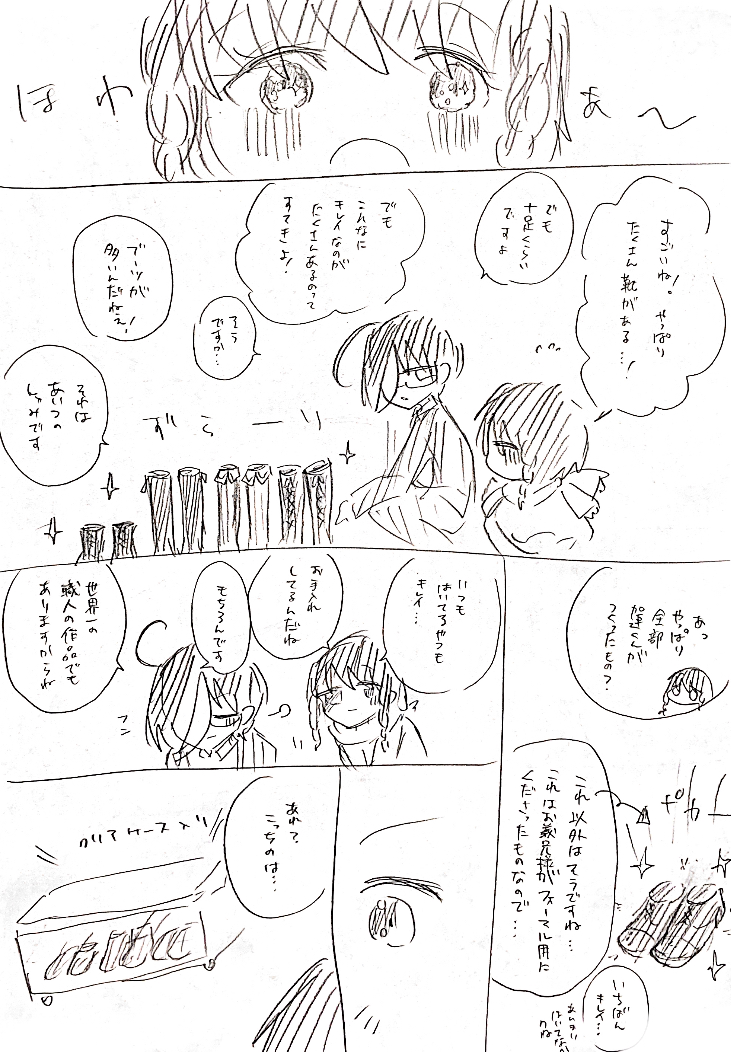 ほわぁ～
すごいね！。やっぱり
たくさん靴がある…！
でも
十足くらい
ですよ
でも
こんなに
キレイなのが
たくさんあるのって
すてきよ！
そう
ですか…
ブーツが
多いんだねぇ！
それは
あいつの
しゅみです
ずらーり
あっ
やっぱり
全部
くんが
つくったもの？
これ以外はそうですね…
これはお義兄様がフォーマル用に
くださったものなので…
ポカー
いちばん
キレイ…
いつも
はいてるやつも
キレイ…
お手入れ
してるんだね
もちろんです
世界一の
職人の作品でも
ありますからね
フン
あれ？
こっちのは…
クリアケース入り